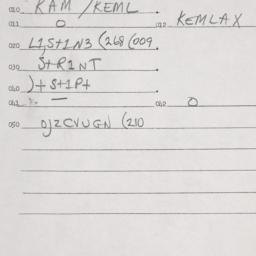 010 KAM/KEML
011 O 012 KEMLAX
020 L1,S+1N3 (268 (009
030 S+R1NT
040 )+S+1P+
041 — 042 O
050 OJZCVUGN (210